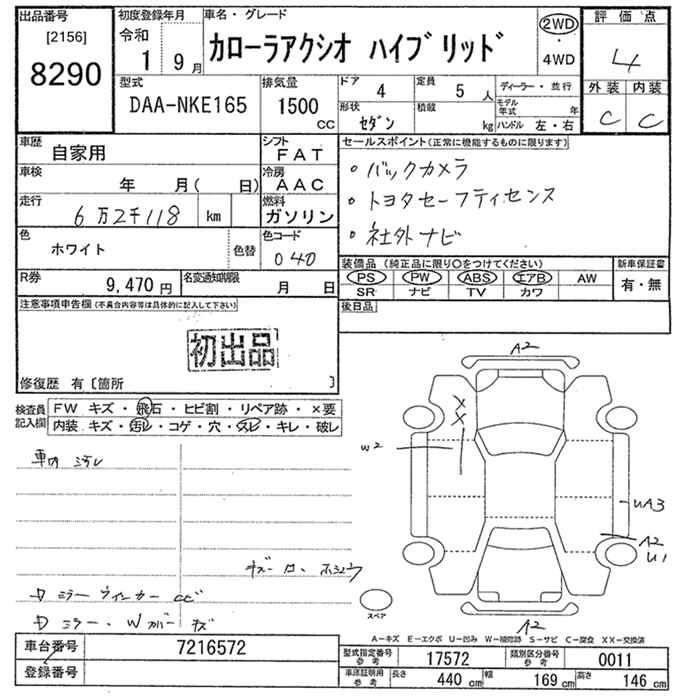 出品番号
[2156]
8290
初度登録年月
令和
1 9月
車名・グレード
カローラアクシオ ハイブリッド
2WD
・
4WD
評価点
4
外装 内装
C C
型式
DAA-NKE165
排気量
1500
cc
ドア
4
定員
5 人
形状
セダン
積載
kg
ディーラー・並行
モデル年式 年
ハンドル 左・右
車歴
自家用
シフト
FAT
車検
年 月( 日)
冷房
AAC
走行
6万2千118 km
燃料
ガソリン
色
ホワイト
色替
色コード
040
R券
9,470 円
名変通知期限
月 日
セールスポイント(正常に機能するものに限ります)
・バックカメラ
・トヨタセーフティセンス
・社外ナビ
装備品(純正品に限り〇をつけてください)
PS PW ABS エアB AW
SR ナビ TV カワ
新車保証書
有・無
後日品
注意事項申告欄(不具合内容等は具体的に記入して下さい)
初出品
修復歴 有〔箇所 〕
検査員記入欄
FW キズ・飛石・ヒビ割・リペア跡・×要
内装 キズ・汚レ・コゲ・穴・スレ・キレ・破レ
車内 汚レ
ミラーウィンカー
ミラー・Wカバー キズ
A2
X
X
W2
UA3
A2
U1
A2
スペア
A-キズ E-エクボ U-凹み W-補修跡 S-サビ C-腐食 XX-交換済
車台番号
7216572
登録番号
型式指定番号 参考
17572
類別区分番号 参考
0011
車庫証明用 参考
長さ 440 cm 幅 169 cm 高さ 146 cm